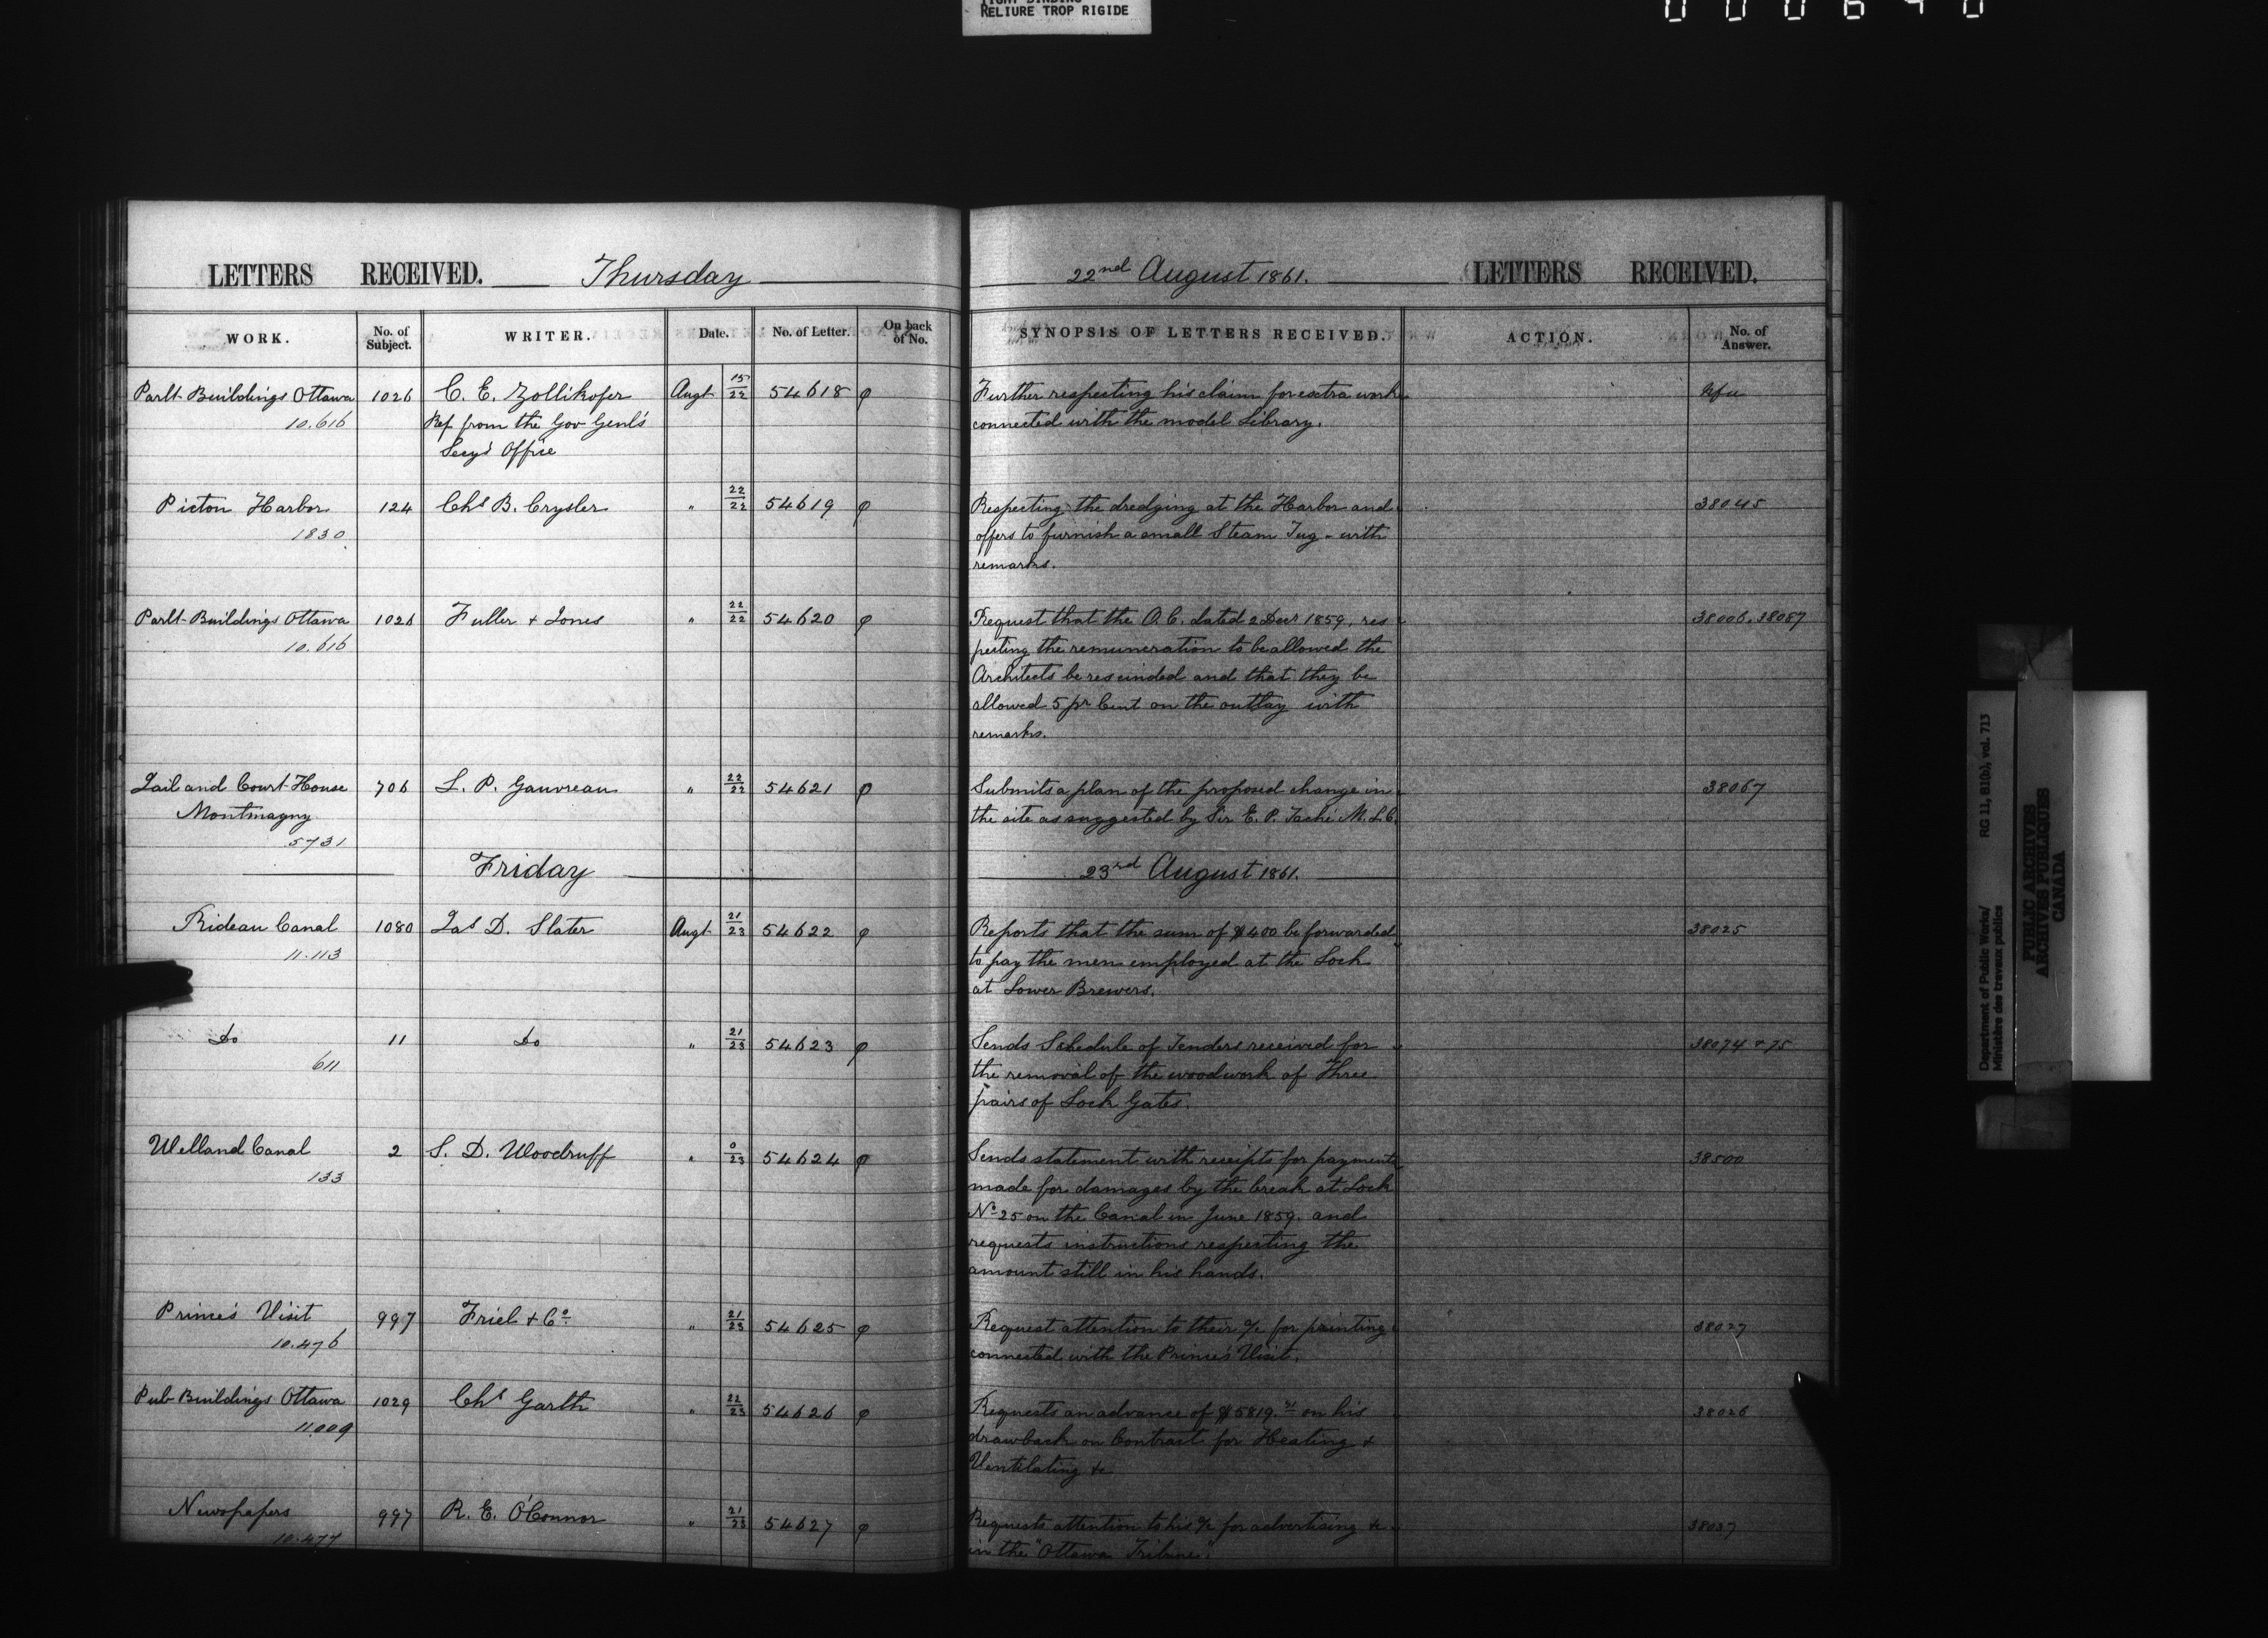 RELIURE TROP RIGIDE
LETTERS RECEIVED. Thursday 22nd August 1861. LETTERS RECEIVED.
WORK. No. of Subject. WRITER. Date. No. of Letter. On back of No. SYNOPSIS OF LETTERS RECEIVED. ACTION. No. of Answer.
Parlt Buildings Ottawa 1026 C. E. Zollikofer Augt 15/22 54618 φ Further respecting his claim for extra work
10.616 Ref from the Gov Genl's connected with the model Library.
Secy's Office
Picton Harbor 124 Chs B. Crysler " 22/22 54619 φ Respecting the dredging at the Harbor and 38045
1830 offers to furnish a small Steam Tug - with
remarks.
Parlt Buildings Ottawa 1026 Fuller & Jones " 22/22 54620 φ Request that the O.C. dated 2 Decr 1859, res 38006. 38087
10.616 pecting the remuneration to be allowed the
Architects be rescinded and that they be
allowed 5 pr Cent on the outlay with
remarks.
Jail and Court House 706 L. P. Gauvreau " 22/22 54621 φ Submits a plan of the proposed change in 38067
Montmagny the site as suggested by Sir E. P. Taché M.L.C.
5731
Friday 23rd August 1861.
Rideau Canal 1080 Jas D. Slater Augt 21/23 54622 φ Reports that the sum of $400 be forwarded 38025
11.113 to pay the men employed at the Lock
at Lower Brewers.
Do 11 Do " 21/23 54623 φ Sends Schedule of Tenders received for 38074 & 75
611 the removal of the woodwork of Three
pairs of Lock Gates.
Welland Canal 2 S. D. Woodruff " 0/23 54624 φ Sends statement with receipts for payments 38500
133 made for damages by the break at Lock
No 25 on the Canal in June 1859. and
requests instructions respecting the
amount still in his hands.
Prince's Visit 997 Friel & Co " 21/23 54625 φ Request attention to their a/c for printing 38027
10.476 connected with the Prince's Visit.
Pub Buildings Ottawa 1029 Chs Garth " 22/23 54626 φ Requests an advance of $5819. on his 38026
11.009 drawback on Contract for Heating &
Ventilating &c
Newspapers 997 R. E. O'Connor " 21/23 54627 φ Requests attention to his a/c for advertising &c 38037
10.477 in the "Ottawa Tribune".
Department of Public Works/ RG 11, B1(b), vol. 713
Ministère des travaux publics
PUBLIC ARCHIVES
ARCHIVES PUBLIQUES
CANADA